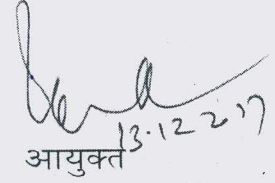 13.12.2017
आयुक्त